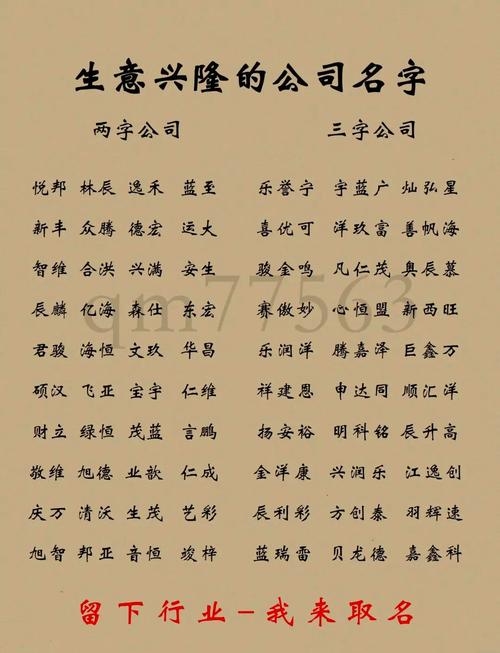 生意兴隆的公司名字
两字公司 三字公司
悦邦 林辰 逸禾 蓝至 乐誉宁 宇蓝广 灿弘星
新丰 众腾 德宏 运大 喜优可 洋玖富 善帆海
智维 合洪 兴满 安生 骏金鸣 凡仁茂 奥辰慕
辰麟 亿海 森仕 东宏 赛傲妙 心恒盟 新西旺
君骏 海恒 文玖 华昌 乐润洋 腾嘉泽 巨鑫万
硕汉 飞亚 宝宇 仁维 祥建恩 申达同 顺汇洋
财立 绿恒 茂蓝 言鹏 扬安裕 明科铭 辰升高
敬维 旭德 业歆 仁成 金洋康 兴润乐 江逸创
庆万 清沃 生茂 艺彩 辰利彩 方创泰 羽辉速
旭智 邦亚 音恒 竣梓 蓝瑞雷 贝龙德 嘉鑫科
qm77563
留下行业-我来取名